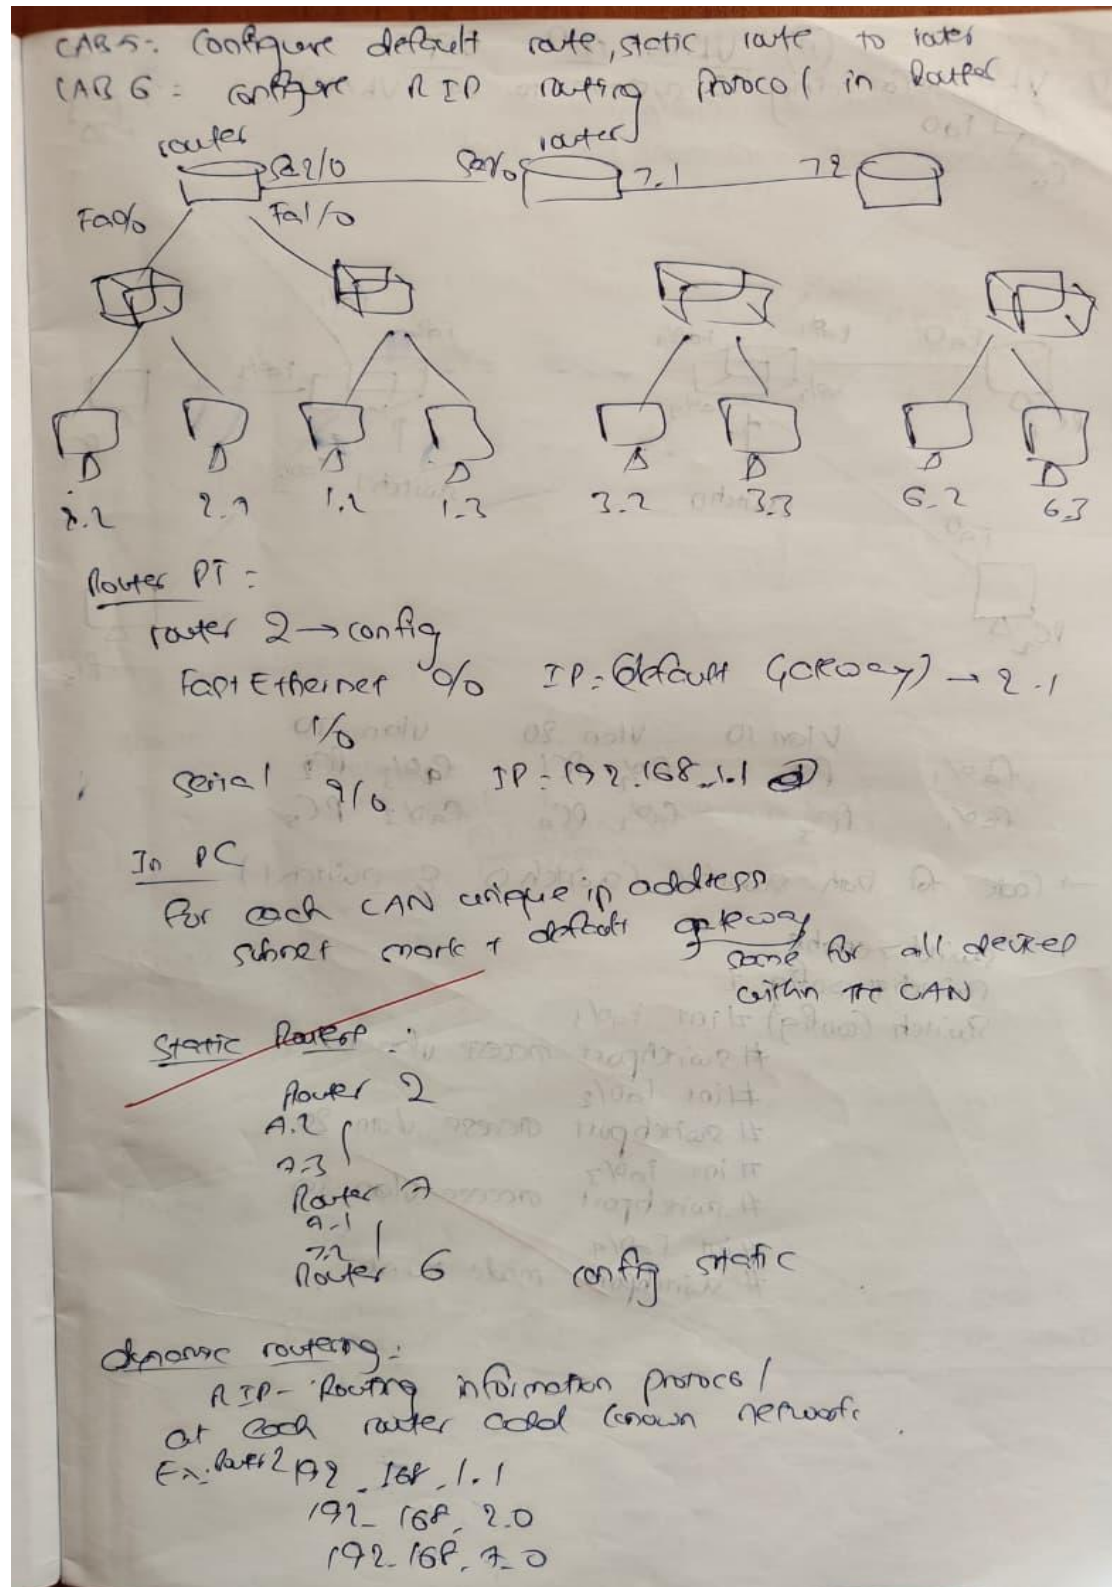 LAB 5: Configure default route, static route to router
LAB 6: configure RIP routing Protocol in Router
router
router
Se2/0
Se2/0
7.1
7.2
Fa0/0
Fa1/0
2.2
2.3
1.2
1.3
3.2
3.3
6.2
6.3
Router PT:
router 2 → config
FastEthernet 0/0 IP: (default Gateway) → 2.1
1/0
Serial 2/0 IP: 192.168.1.1
In PC
For each LAN unique ip address
subnet mask + default gateway
same for all devices
within the LAN
Static Router:
Router 2
Router 7
7.2
Router 6 config static
dynamic routering:
RIP - Routing information protocol
at each router add known network
Ex: Router 2 192.168.1.1
192.168.2.0
192.168.7.0